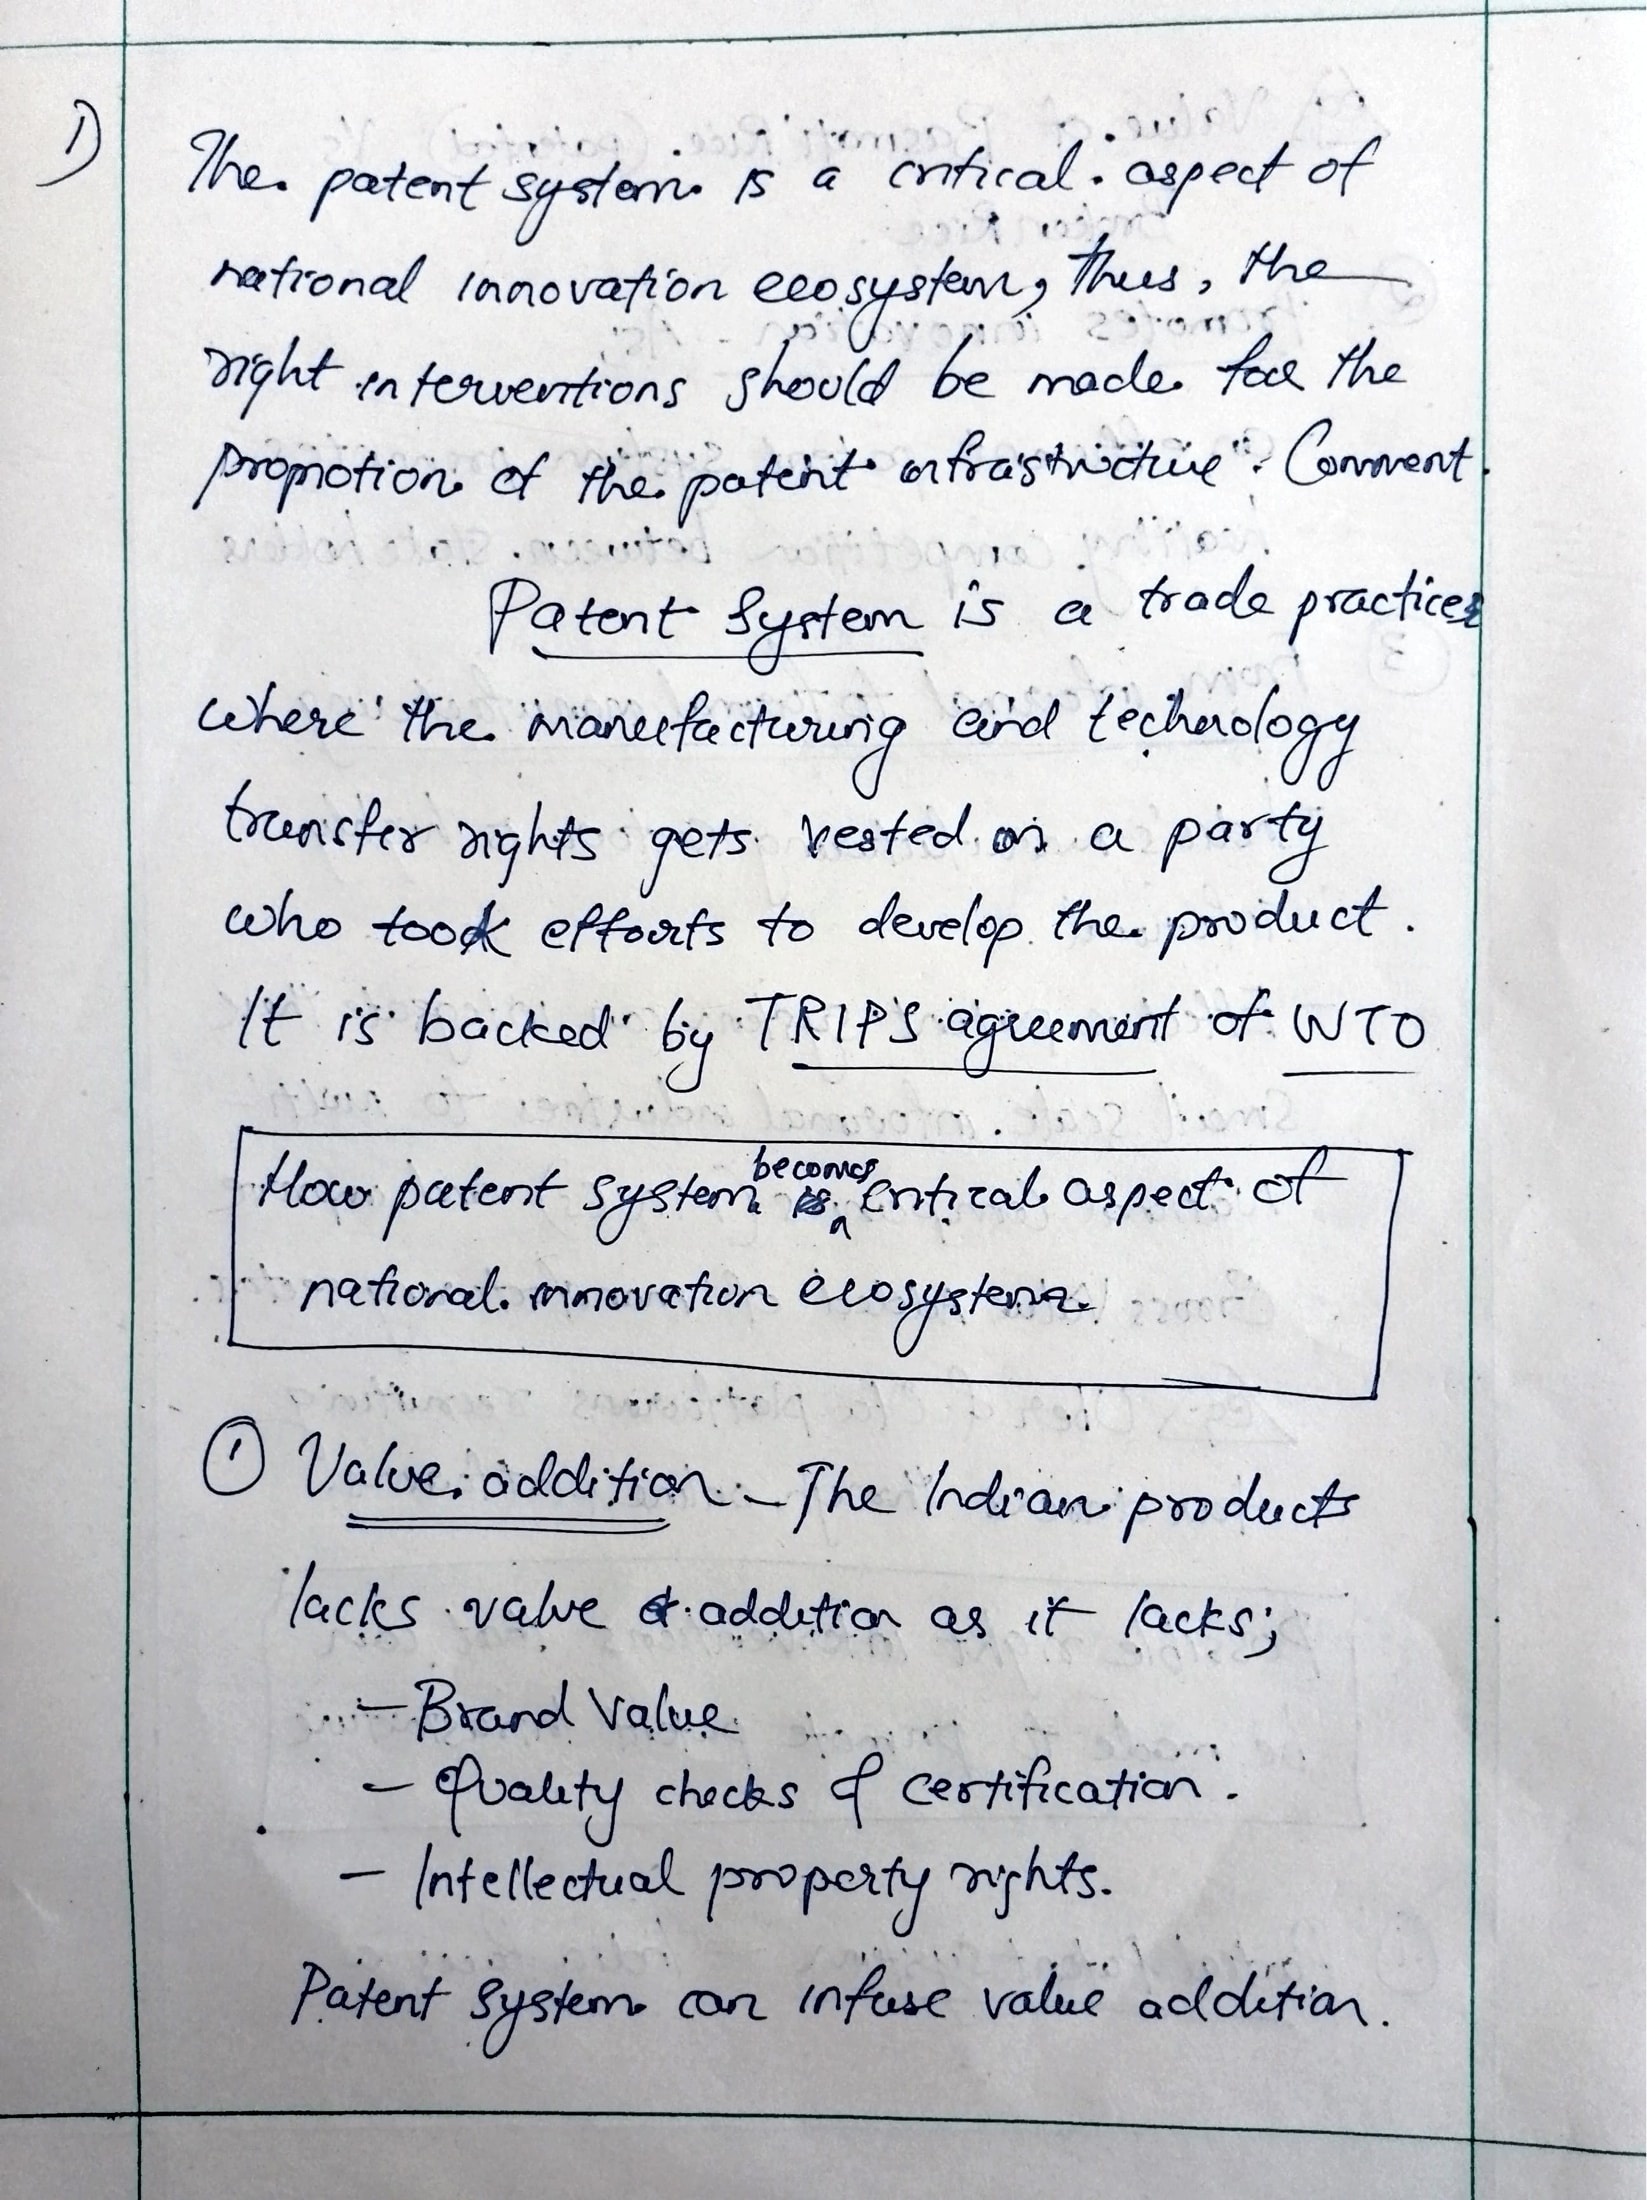 1)
The patent system is a critical aspect of
national innovation ecosystem, thus, the
right interventions should be made for the
promotion of the patent infrastructure". Comment.
Patent System is a trade practice
where the manufacturing and technology
transfer rights gets vested on a party
who took efforts to develop the product.
It is backed by TRIPS agreement of WTO
How patent system becomes critical aspect of
national innovation ecosystem.
① Value addition - The Indian products
lacks value addition as it lacks;
- Brand Value
- Quality checks & certification.
- Intellectual property rights.
Patent system can infuse value addition.